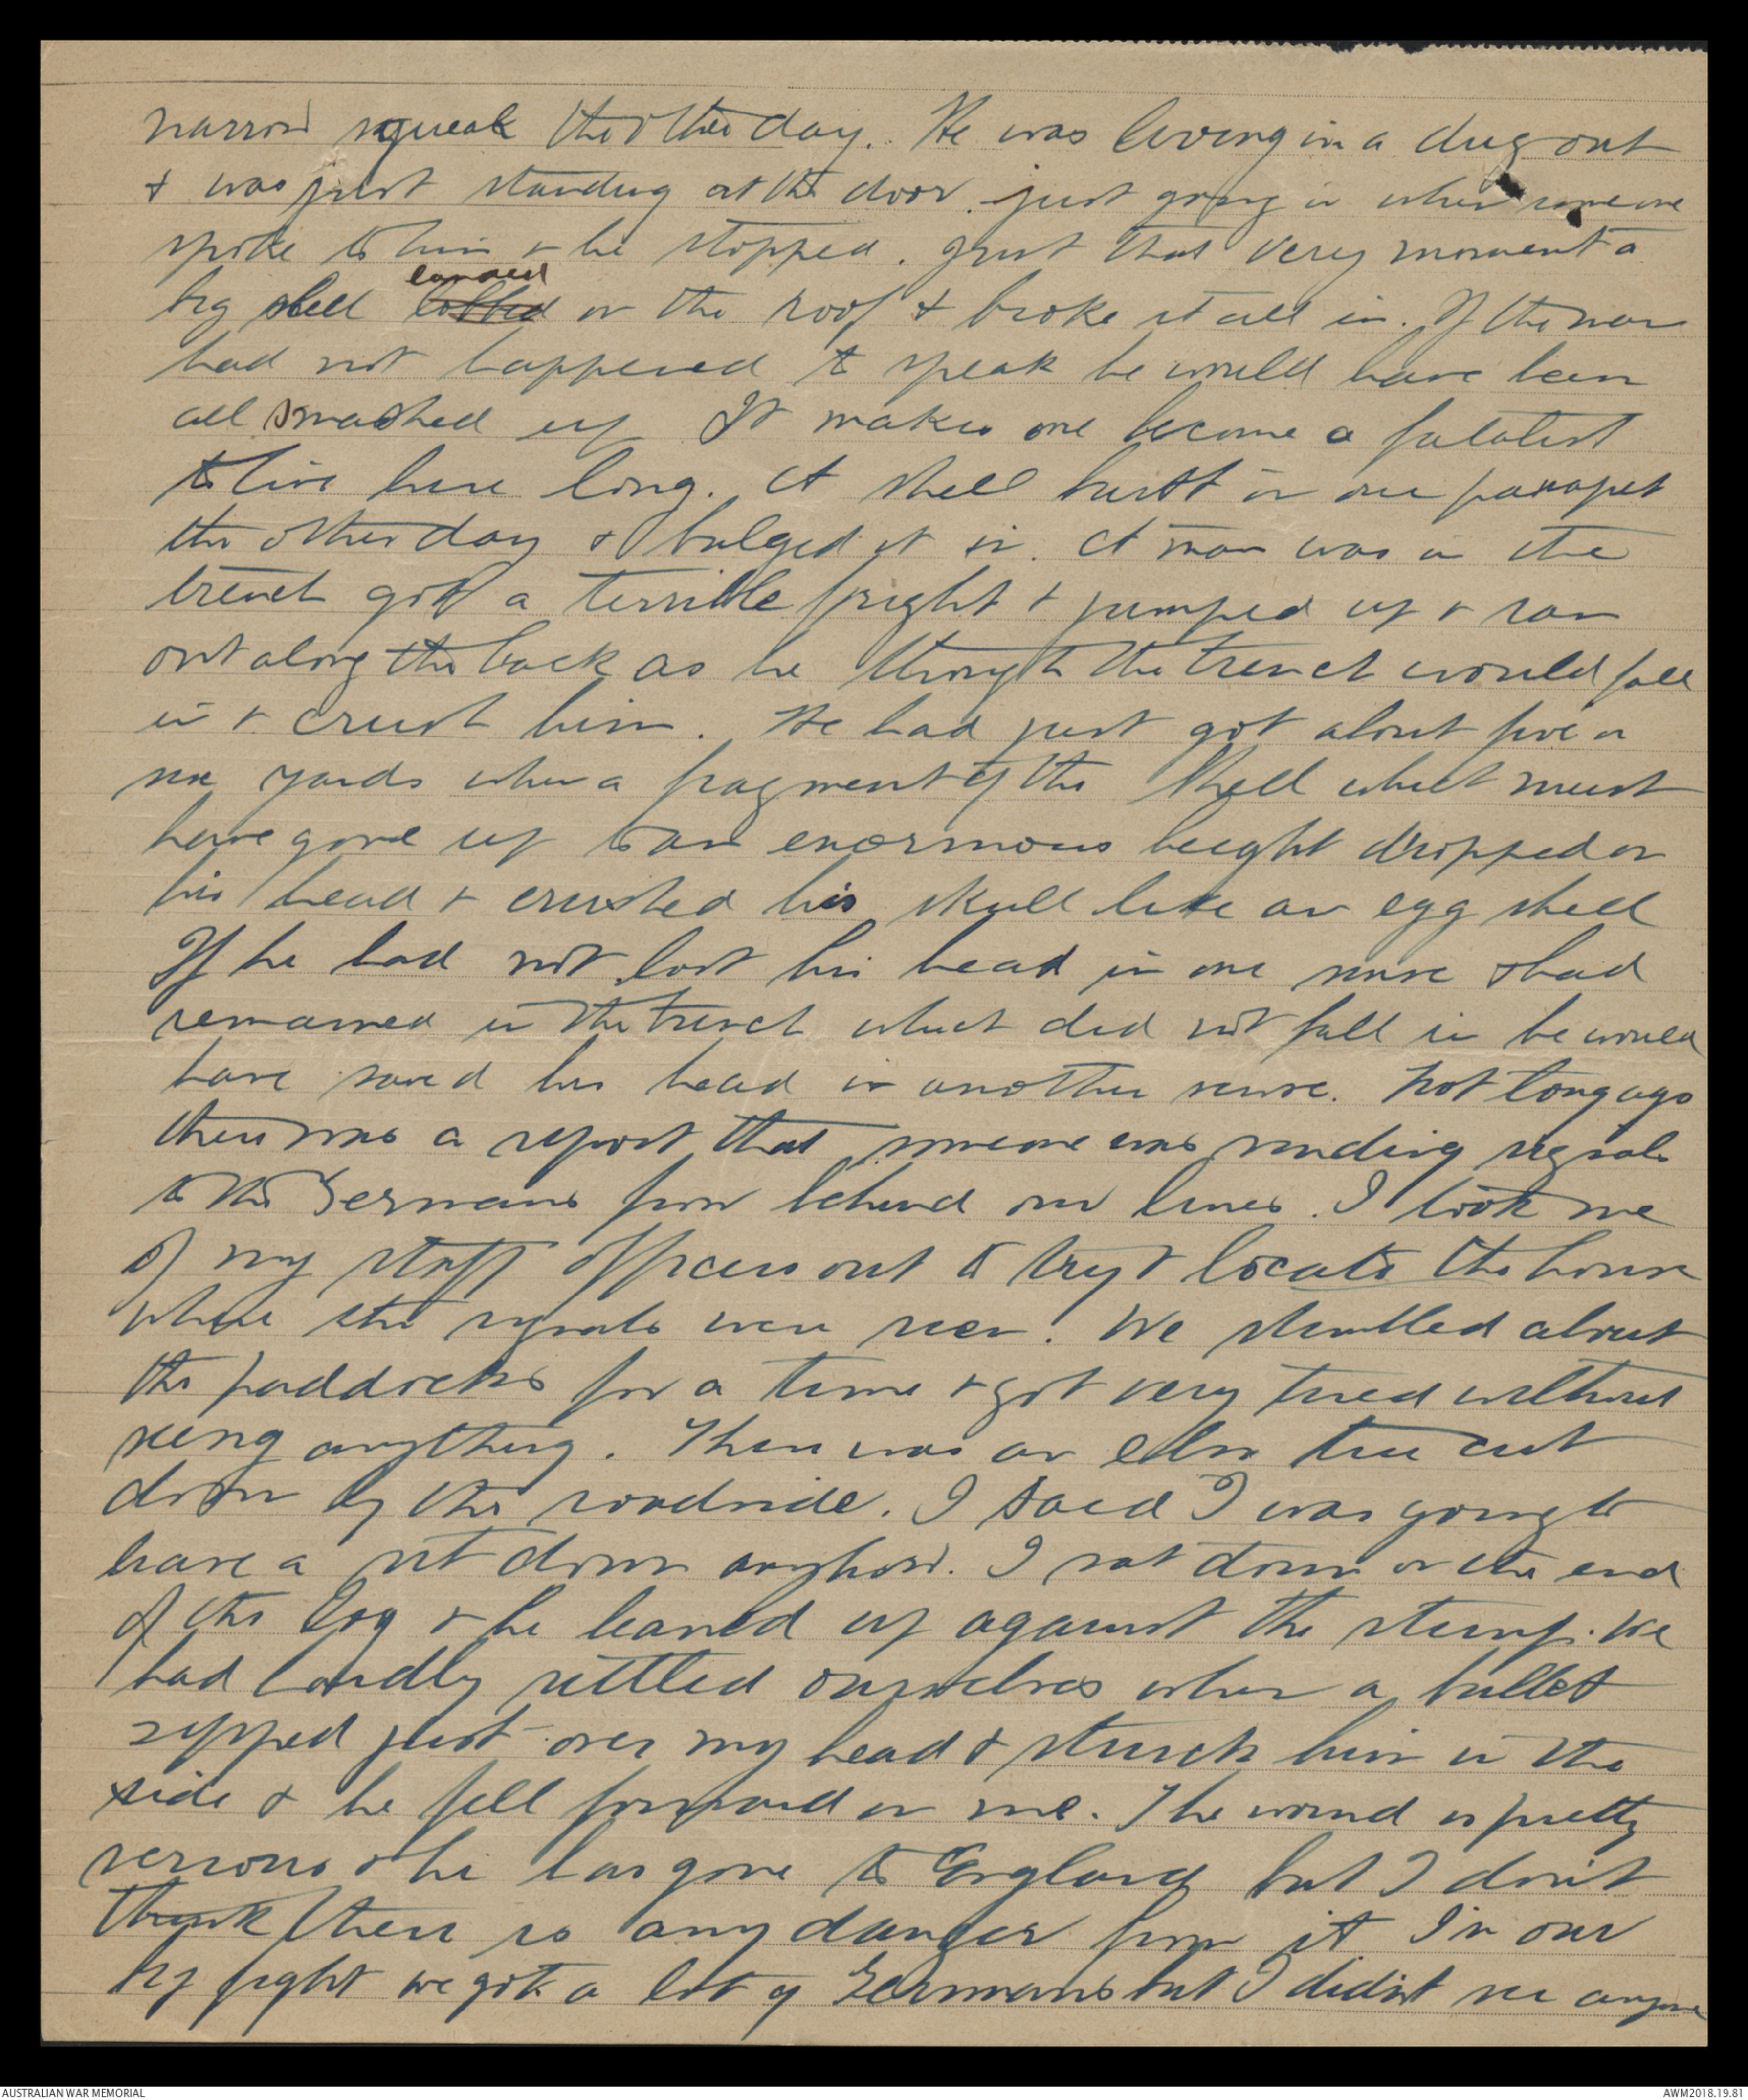 narrow squeak the other day. He was living in a dug out
& was just standing at the door just going in when someone
spoke to him & he stopped. Just that very moment a
landed
big shell lobbed on the roof & broke it all in. If the man
had not happened to speak he would have been
all smashed up It makes one become a fatalist
to live here long. A shell burst in our parapet
the other day & bulged it in. A man was in the
trench got a terrible fright & jumped up & ran
out along the back as he thought the trench would fall
in & crush him. He had just got about five or
six yards when a fragment of the shell which must
have gone up to an enormous height dropped on
his head & crushed his skull like an egg shell
If he had not lost his head in one sense & had
remained in the trench which did not fall in he would
have saved his head in another sense. Not long ago
there was a report that someone was sending signals
to the Germans from behind our lines. I took one
of my staff officers out to try & locate the house
where the signals were seen. We strolled about
the paddocks for a time & got very tired without
seeing anything. There was an elm tree cut
down by the roadside. I said I was going to
have a sit down anyhow. I sat down on the end
of the log & he leaned up against the stump. We
had hardly settled ourselves when a bullet
zipped just over my head & struck him in the
side & he fell forward on me. The wound is pretty
serious & he has gone to England but I don't
think there is any danger from it In our
big fight we got a lot of Germans but I didn't see anyone
AUSTRALIAN WAR MEMORIAL
AWM2018.19.81